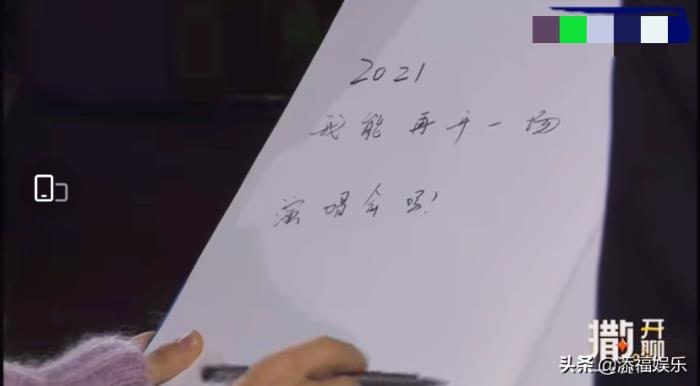 2021
我能再开一场
演唱会吗!
撒开聊
头条 @添福娱乐